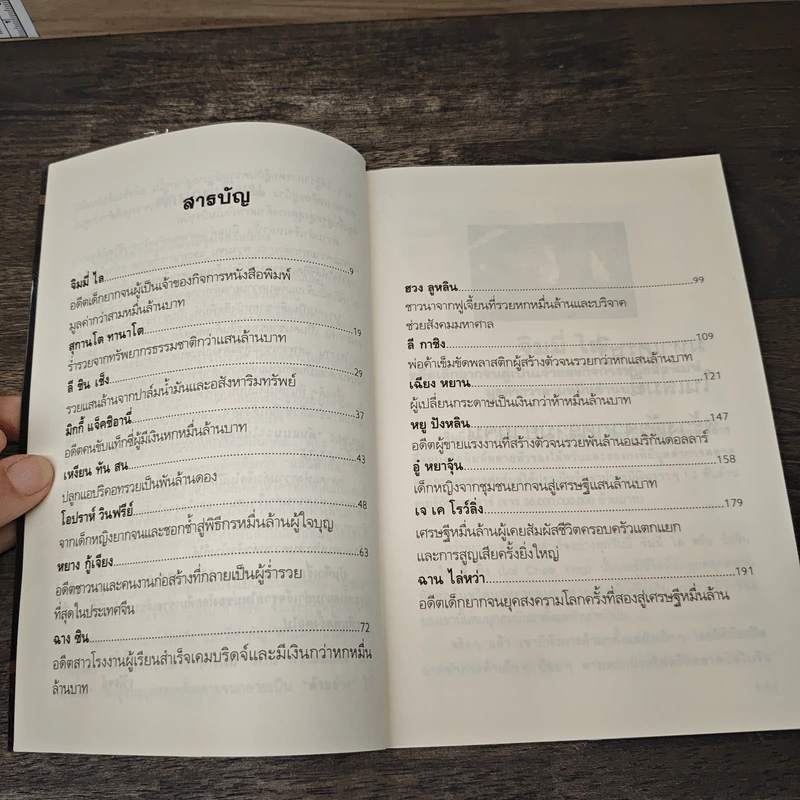 สารบัญ
จิมมี่ ไล 9
อดีตเด็กยากจนผู้เป็นเจ้าของกิจการหนังสือพิมพ์
มูลค่ากว่าสามหมื่นล้านบาท
สุกานโต ทานาโต 19
ร่ำรวยจากทรัพยากรธรรมชาติกว่าแสนล้านบาท
ลี ชิน เซ็ง 29
รวยแสนล้านจากปาล์มน้ำมันและอสังหาริมทรัพย์
มิกกี้ แจ็คซิอานี่ 37
อดีตคนขับแท็กซี่ผู้มีเงินหกหมื่นล้านบาท
เหงียน ทัน สน 43
ปลูกแอปริคอทรวยเป็นพันล้านดอง
โอปราห์ วินฟรีย์ 48
จากเด็กหญิงยากจนและชอกช้ำสู่พิธีกรหมื่นล้านผู้ใจบุญ
หยาง กู้เจียง 63
อดีตชาวนาและคนงานก่อสร้างที่กลายเป็นผู้ร่ำรวย
ที่สุดในประเทศจีน
ฉาง ซิน 72
อดีตสาวโรงงานผู้เรียนสำเร็จเคมบริดจ์และมีเงินกว่าหกหมื่น
ล้านบาท
ฮวง ลูหลิน 99
ชาวนาจากฟูเจี้ยนที่รวยหกหมื่นล้านและบริจาค
ช่วยสังคมมหาศาล
ลี กาชิง 109
พ่อค้าเข็มขัดพลาสติกผู้สร้างตัวจนรวยกว่าหกแสนล้านบาท
เฉียง หยาน 121
ผู้เปลี่ยนกระดาษเป็นเงินกว่าห้าหมื่นล้านบาท
หยู ปังหลิน 147
อดีตผู้ขายแรงงานที่สร้างตัวจนรวยพันล้านอเมริกันดอลลาร์
อู๋ หยาจุ้น 158
เด็กหญิงจากชุมชนยากจนสู่เศรษฐีแสนล้านบาท
เจ เค โรว์ลิ่ง 179
เศรษฐีหมื่นล้านผู้เคยสัมผัสชีวิตครอบครัวแตกแยก
และการสูญเสียครั้งยิ่งใหญ่
ฉาน ไล่หว่า 191
อดีตเด็กยากจนยุคสงครามโลกครั้งที่สองสู่เศรษฐีหมื่นล้าน